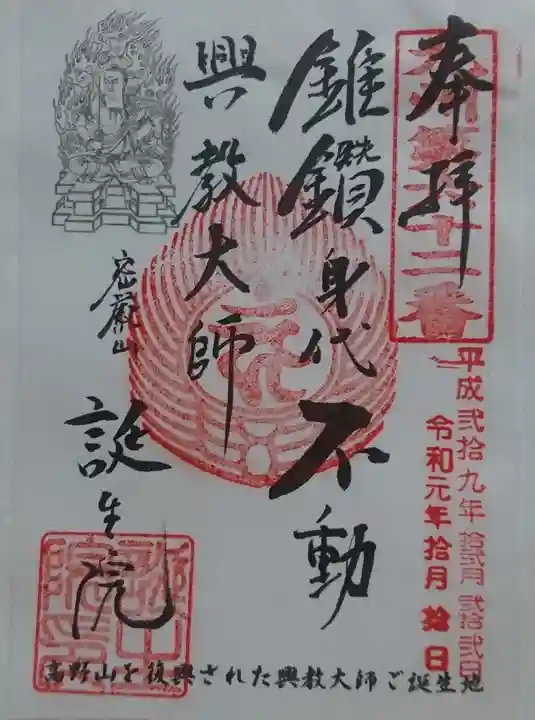 奉拝
平成弐拾九年拾弐月弐拾弐日
令和元年拾月拾日
錐鑽身代不動
興教大師
密厳山
誕生院
高野山を復興された興教大師ご誕生地